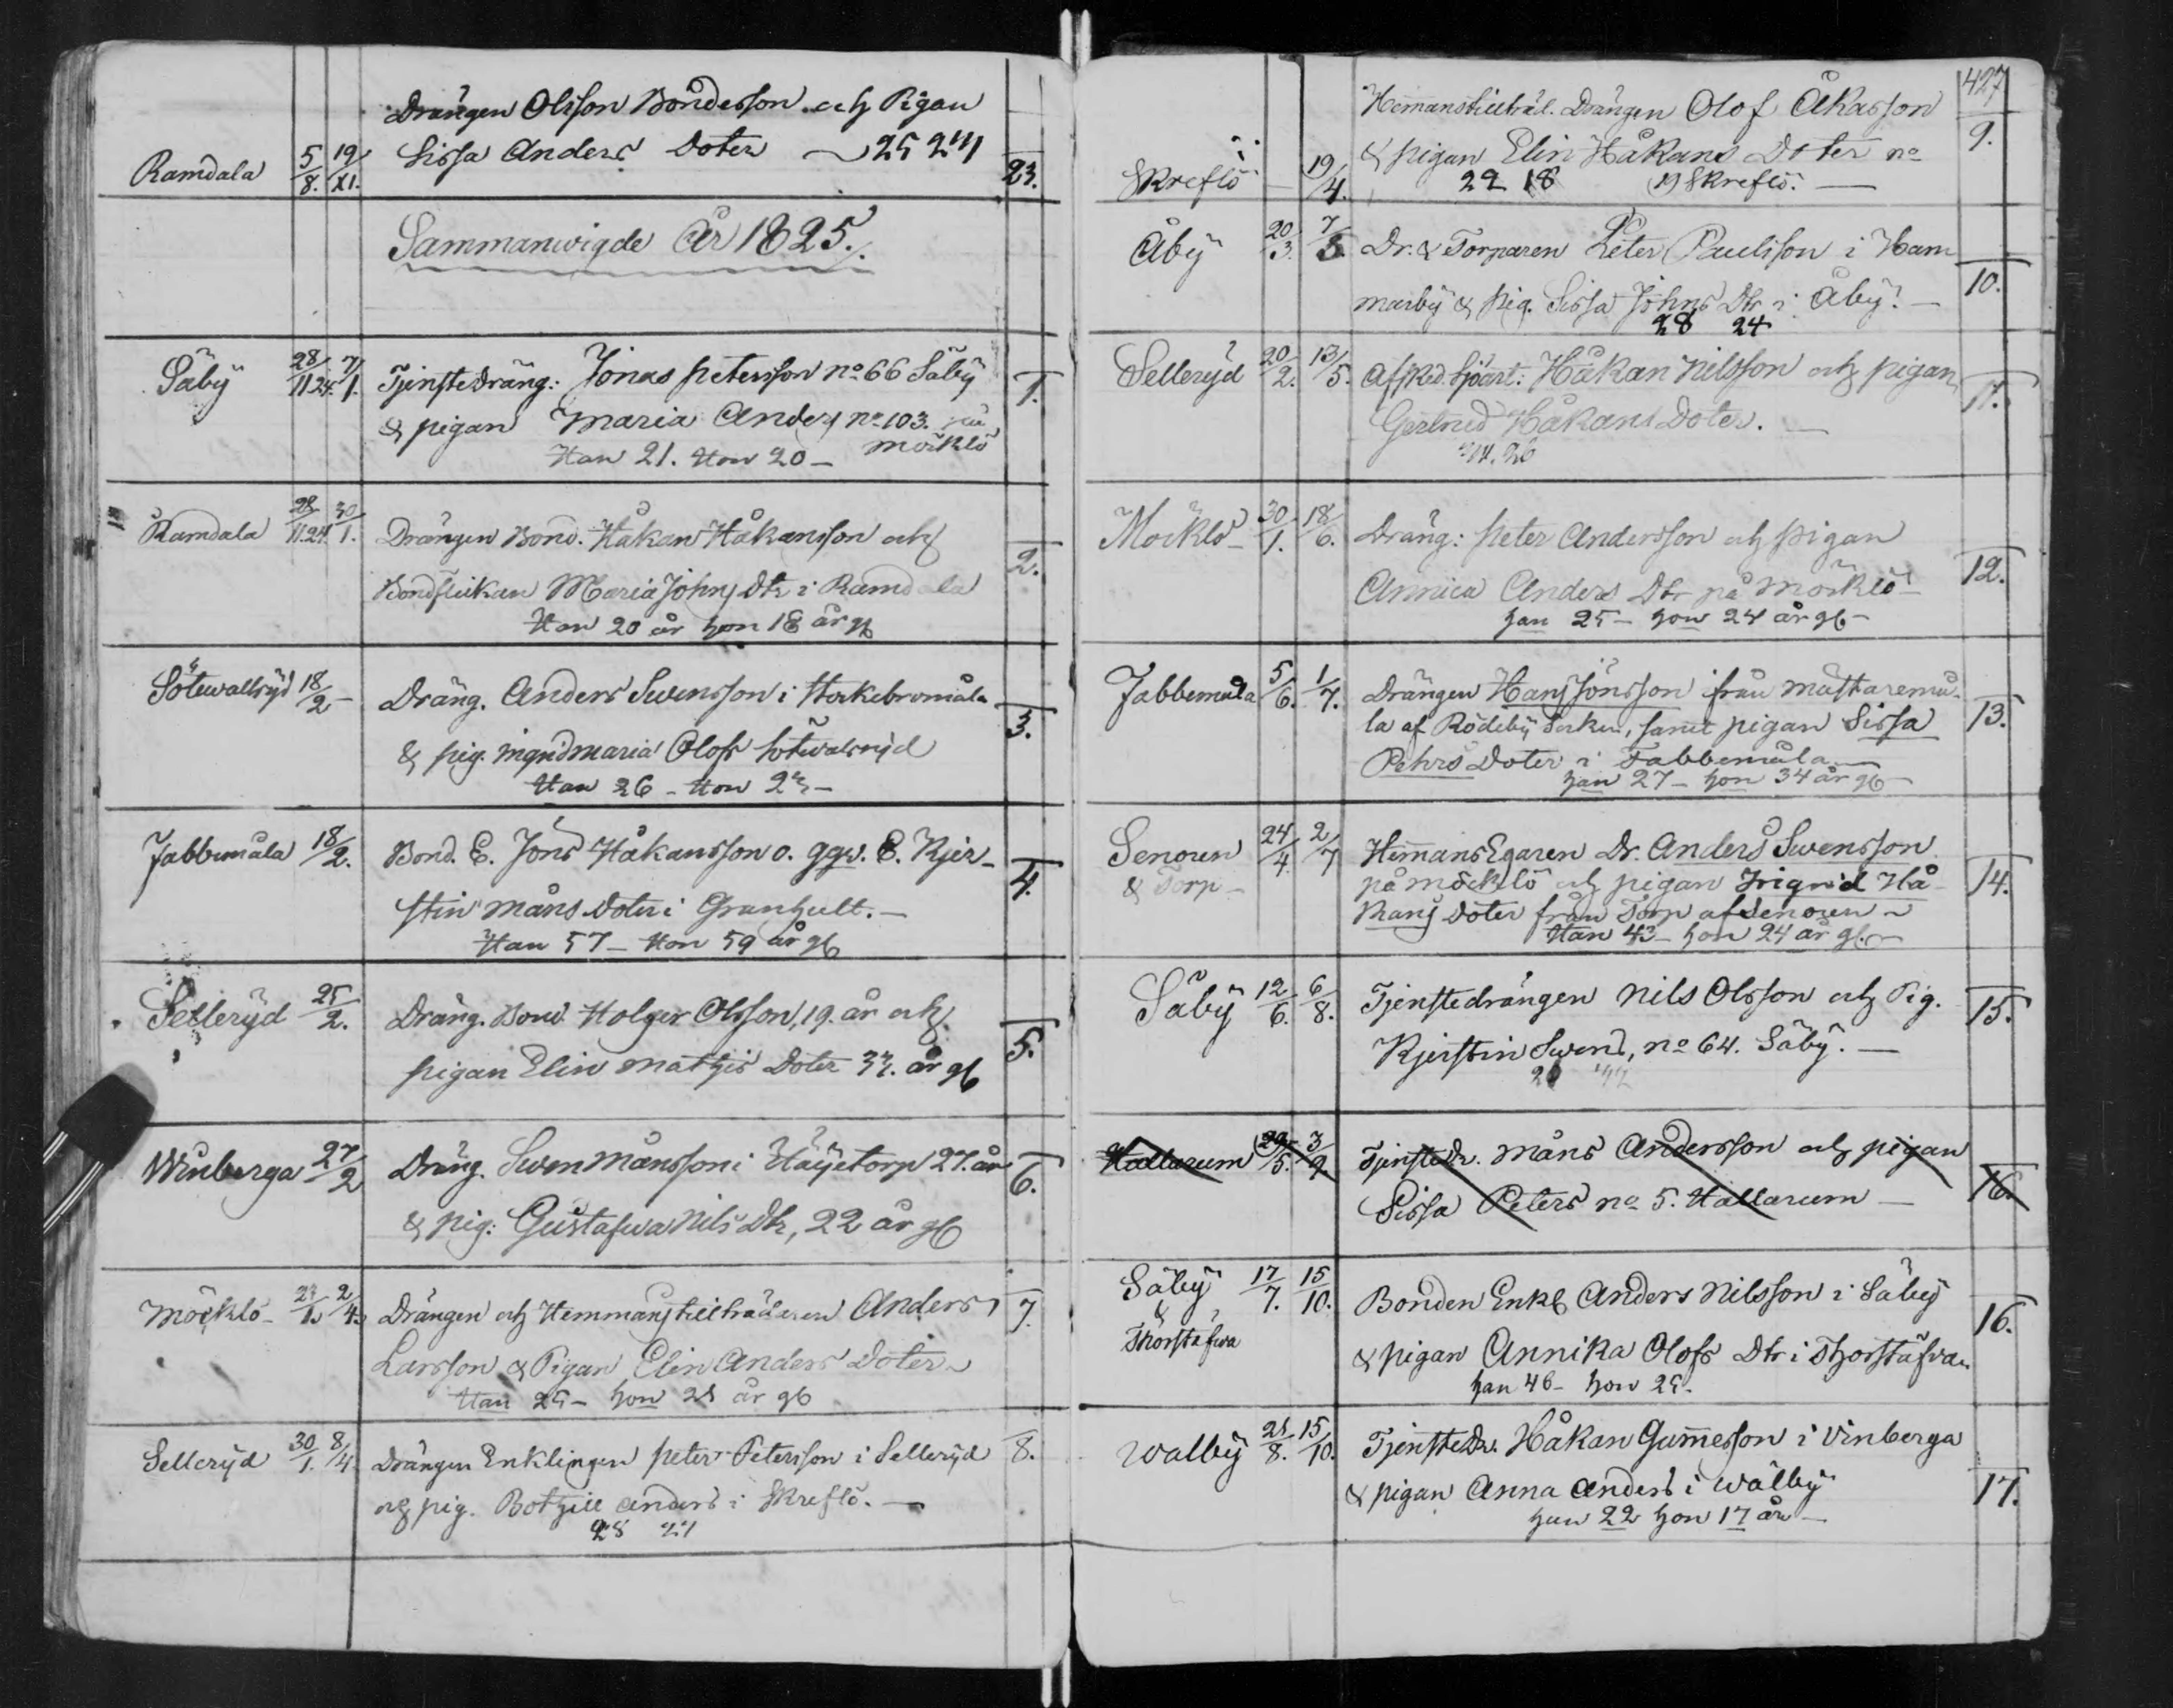 Drängen Olsson Bondesson och Pigan
Ramdala 5/8. 19/XI. Sissa Anders Doter 23.
Sammanwigde År 1825.
Säby 28/11 24. 7/1. Tjenstedräng: Jonas Petersson no 66 Säby 1.
& pigan Maria Anders no 103. på
Möcklö
Han 21. Hon 20 –
Ramdala 28/11.24. 30/1. Drängen Bond. Håkan Håkansson och 2.
Bondflickan Maria Johns Dtr i Ramdala
Han 20 år hon 18 år gl
Sötewallryd 18/2 – Dräng. Anders Swensson i 3.
& pig. Ingridmaria Olofs
Han 26 – Hon
Fabbemåla 18/2. Bond. E. Jöns Håkansson o. ggw. E. Kjer- 4.
stin Måns Doter i Granhult. –
Han 57 – Hon 59 år gl
Selleryd 25/2. Dräng. Bond. Holger Olsson, 19. år och 5.
pigan Elin Mathis Doter år gl
Winberga 27/2 Dräng. Swen Månsson i Häyetorp 27. år 6.
& pig: Gustafwa Nils Dtr, 22 år gl
Möcklö – 2/4. Drängen och Hemmanstillträdaren Anders 7.
Larsson & Pigan Elin Anders Doter
Han 25 – hon år gl
Selleryd 30/1. 8/4. Drängen Enklingen Peter Petersson i Selleryd 8.
och pig. Bothill Anders i Skreflö. –
28
427
Hemmanstillträd. Drängen Olof Åkasson 9.
Skreflö 19/4. & pigan Elin Håkans Doter no
22 18 19 Skreflö. –
Åby 20/3. 7/5. Dr. & Torparen Peter Paulsson i Ham 10.
marby & pig. Sissa Johns Dtr i Åby. –
28 24
Selleryd 20/2. 13/5. Afsked. Sjöart. Håkan Nilsson och pigan 11.
Gertrud Håkans Doter. –
Möcklö – 30/1. 18/6. Dräng: Peter Andersson och pigan 12.
Annica Anders Dtr på Möcklö –
han 25 – hon 24 år gl –
Fabbemåla 5/6. 1/7. Drängen Hans Jönsson från Mästaremå- 13.
la af Rödeby Socken, samt pigan Sissa
Pehrs Doter i Fabbemåla –
han 27 – hon 34 år gl –
Senoren 24/4. 2/7 Hemmans Egaren Dr. Anders Swensson 14.
& Torp – på Möcklö och pigan Ingrid Hå-
kans Doter från Torp af Senoren –
Han 43 – hon 24 år gl. –
Säby 12/6. 6/8. Tjenstedrängen Nils Olsson och Pig. 15.
Kjerstin Swens, no 64. Säby. –
Hallarum 29/5. 3/9 Tjenstedr. Måns Andersson och pigan 16.
Sissa Peters no 5. Hallarum –
Säby 17/7. 15/10. Bonden Enkl Anders Nilsson i Säby 16.
& Thorstäfwa & pigan Annika Olofs Dtr i Thorstäfva.
han 46 – hon 25.
Walby 15/10. Tjenstedr. Håkan Gummesson i Vinberga 17.
& pigan Anna Anders i Walby
han 22 hon 17 år –